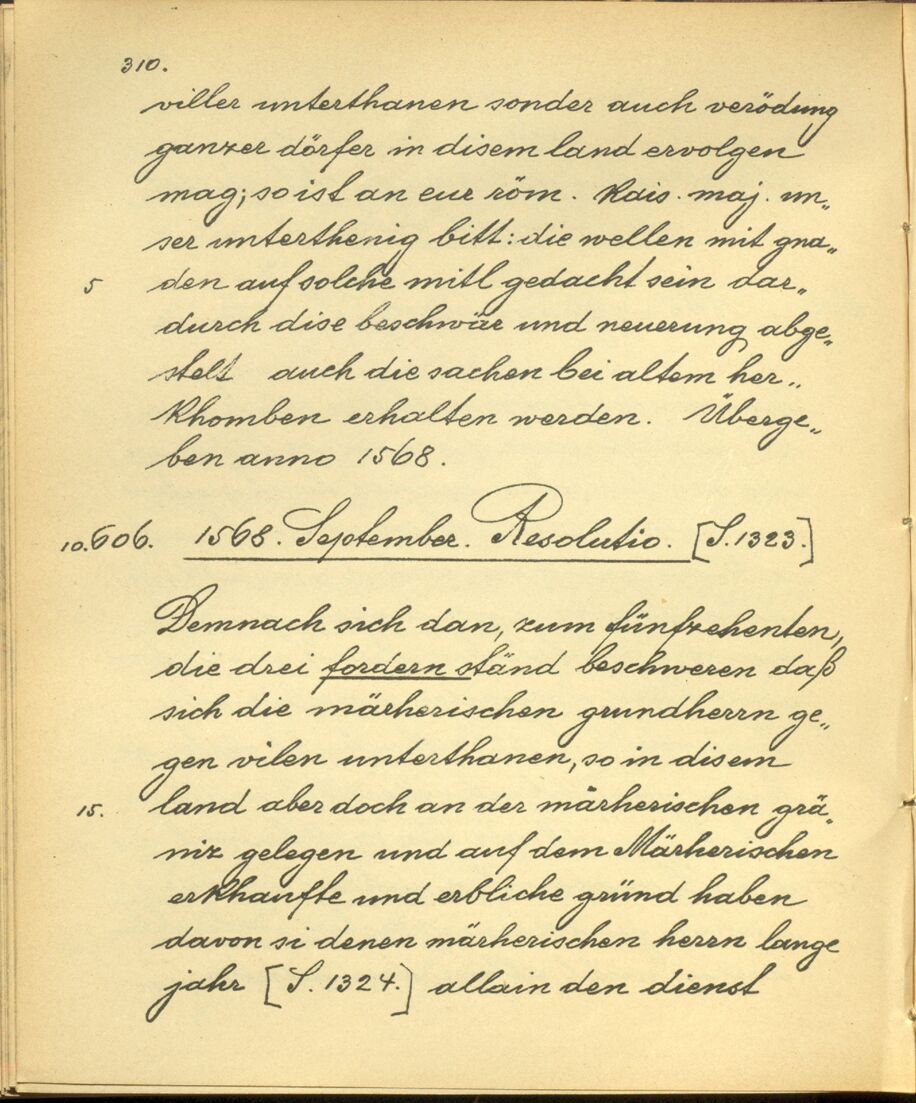 310.
viller unterthanen sonder auch verödung
ganzer dörfer in disem land ervolgen
mag; so ist an eur röm. kais. maj. un„
ser unterthenig bitt: die wellen mit gna„
5 den auf solche mitl gedacht sein dar„
durch dise beschwär und neuerung abge„
stelt auch die sachen bei altem her„
khomben erhalten werden. Überge„
ben anno 1568.
10. 606. 1568. September. Resolutio. [S. 1323.]
Demnach sich dan, zum fünfzehenten,
die drei fordern ständ beschweren daß
sich die märherischen grundherrn ge„
gen vilen unterthanen, so in disem
15. land aber doch an der märherischen grä„
niz gelegen und auf dem Märherischen
erkhaufte und erbliche gründ haben
davon si denen märherischen herrn lange
jahr [S. 1324.] allain den dienst